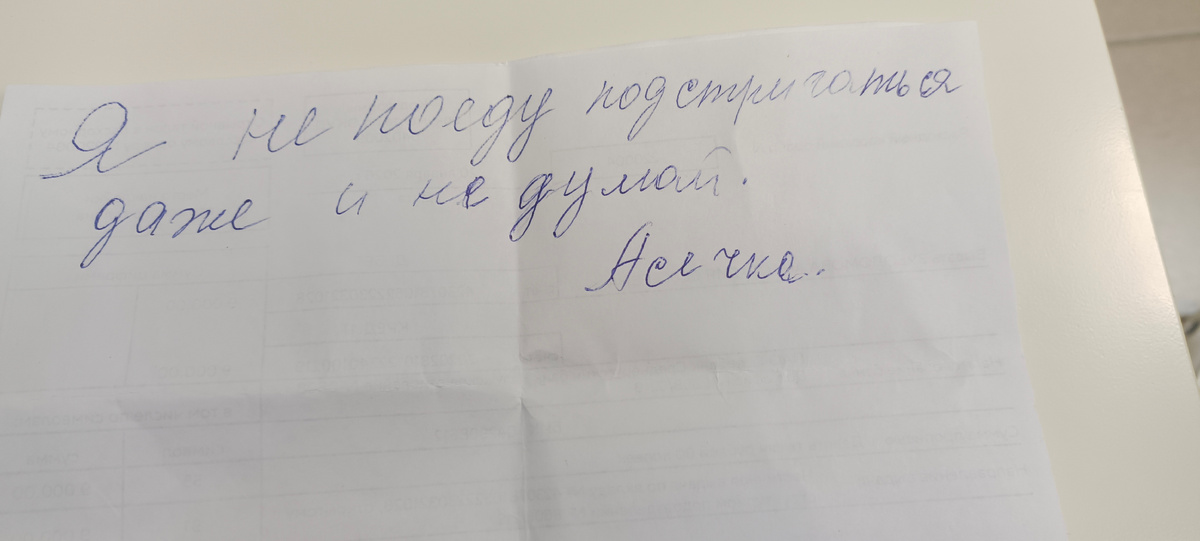 Я не поеду подстригаться
даже и не думай.
Асечка.